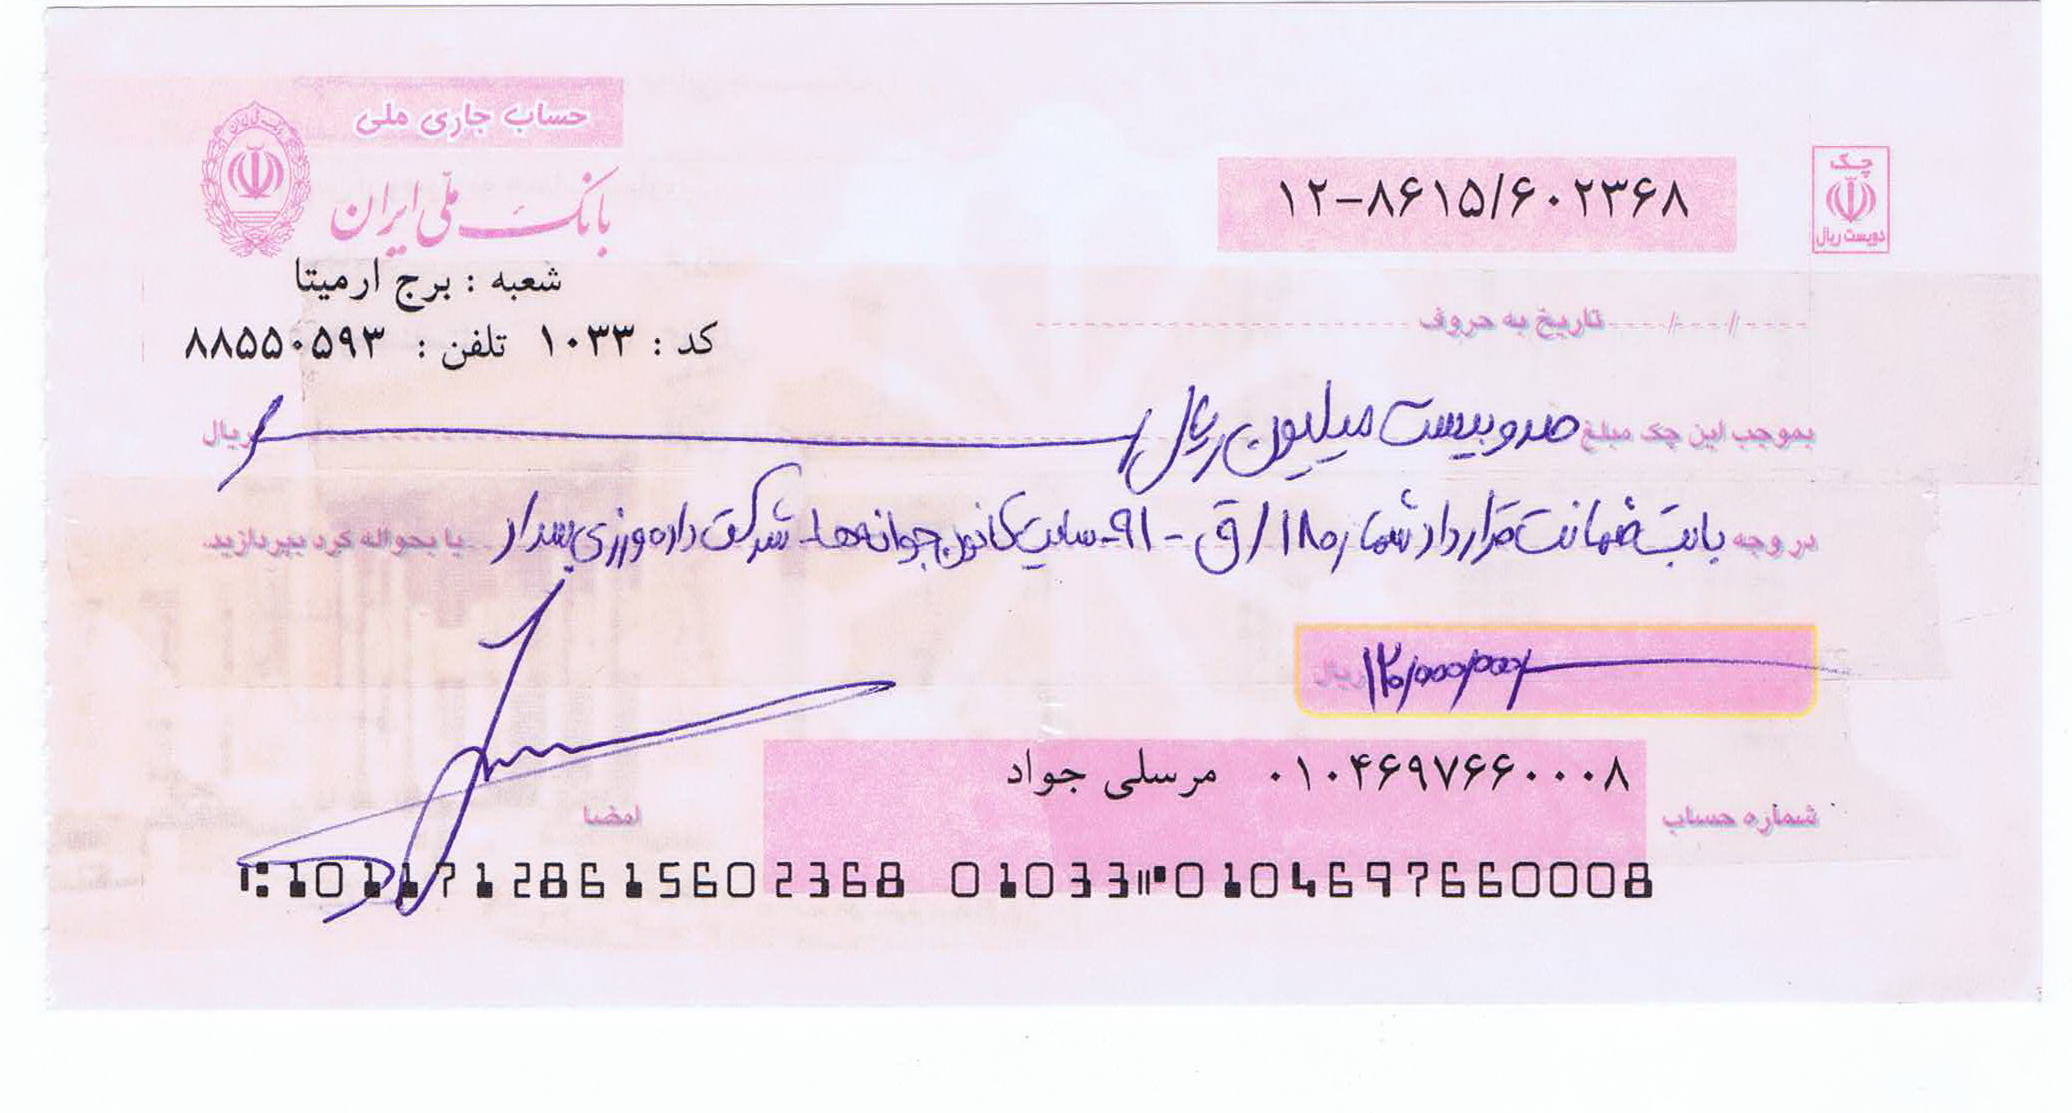 حساب جاری ملی
بانک ملی ایران
شعبه : برج ارمیتا
کد : ۱۰۳۳ تلفن : ۸۸۵۵۰۵۹۳
چک
دویست ریال
۱۲-۸۶۱۵/۶۰۲۳۶۸
..../..../.... تاریخ به حروف
بموجب این چک مبلغ صد و بیست میلیون ریال ریال
در وجه بابت ضمانت قرارداد شماره ۱۸/ق - ۹۱- سایت کانون جوانه‌ها - شرکت داده ورزی یا بحواله کرد بپردازید.
۱۲۰/۰۰۰/۰۰۰ ریال
شماره حساب ۰۱۰۴۶۹۷۶۶۰۰۰۸ مرسلی جواد
امضا
10117128615602368 01033 0104697660008